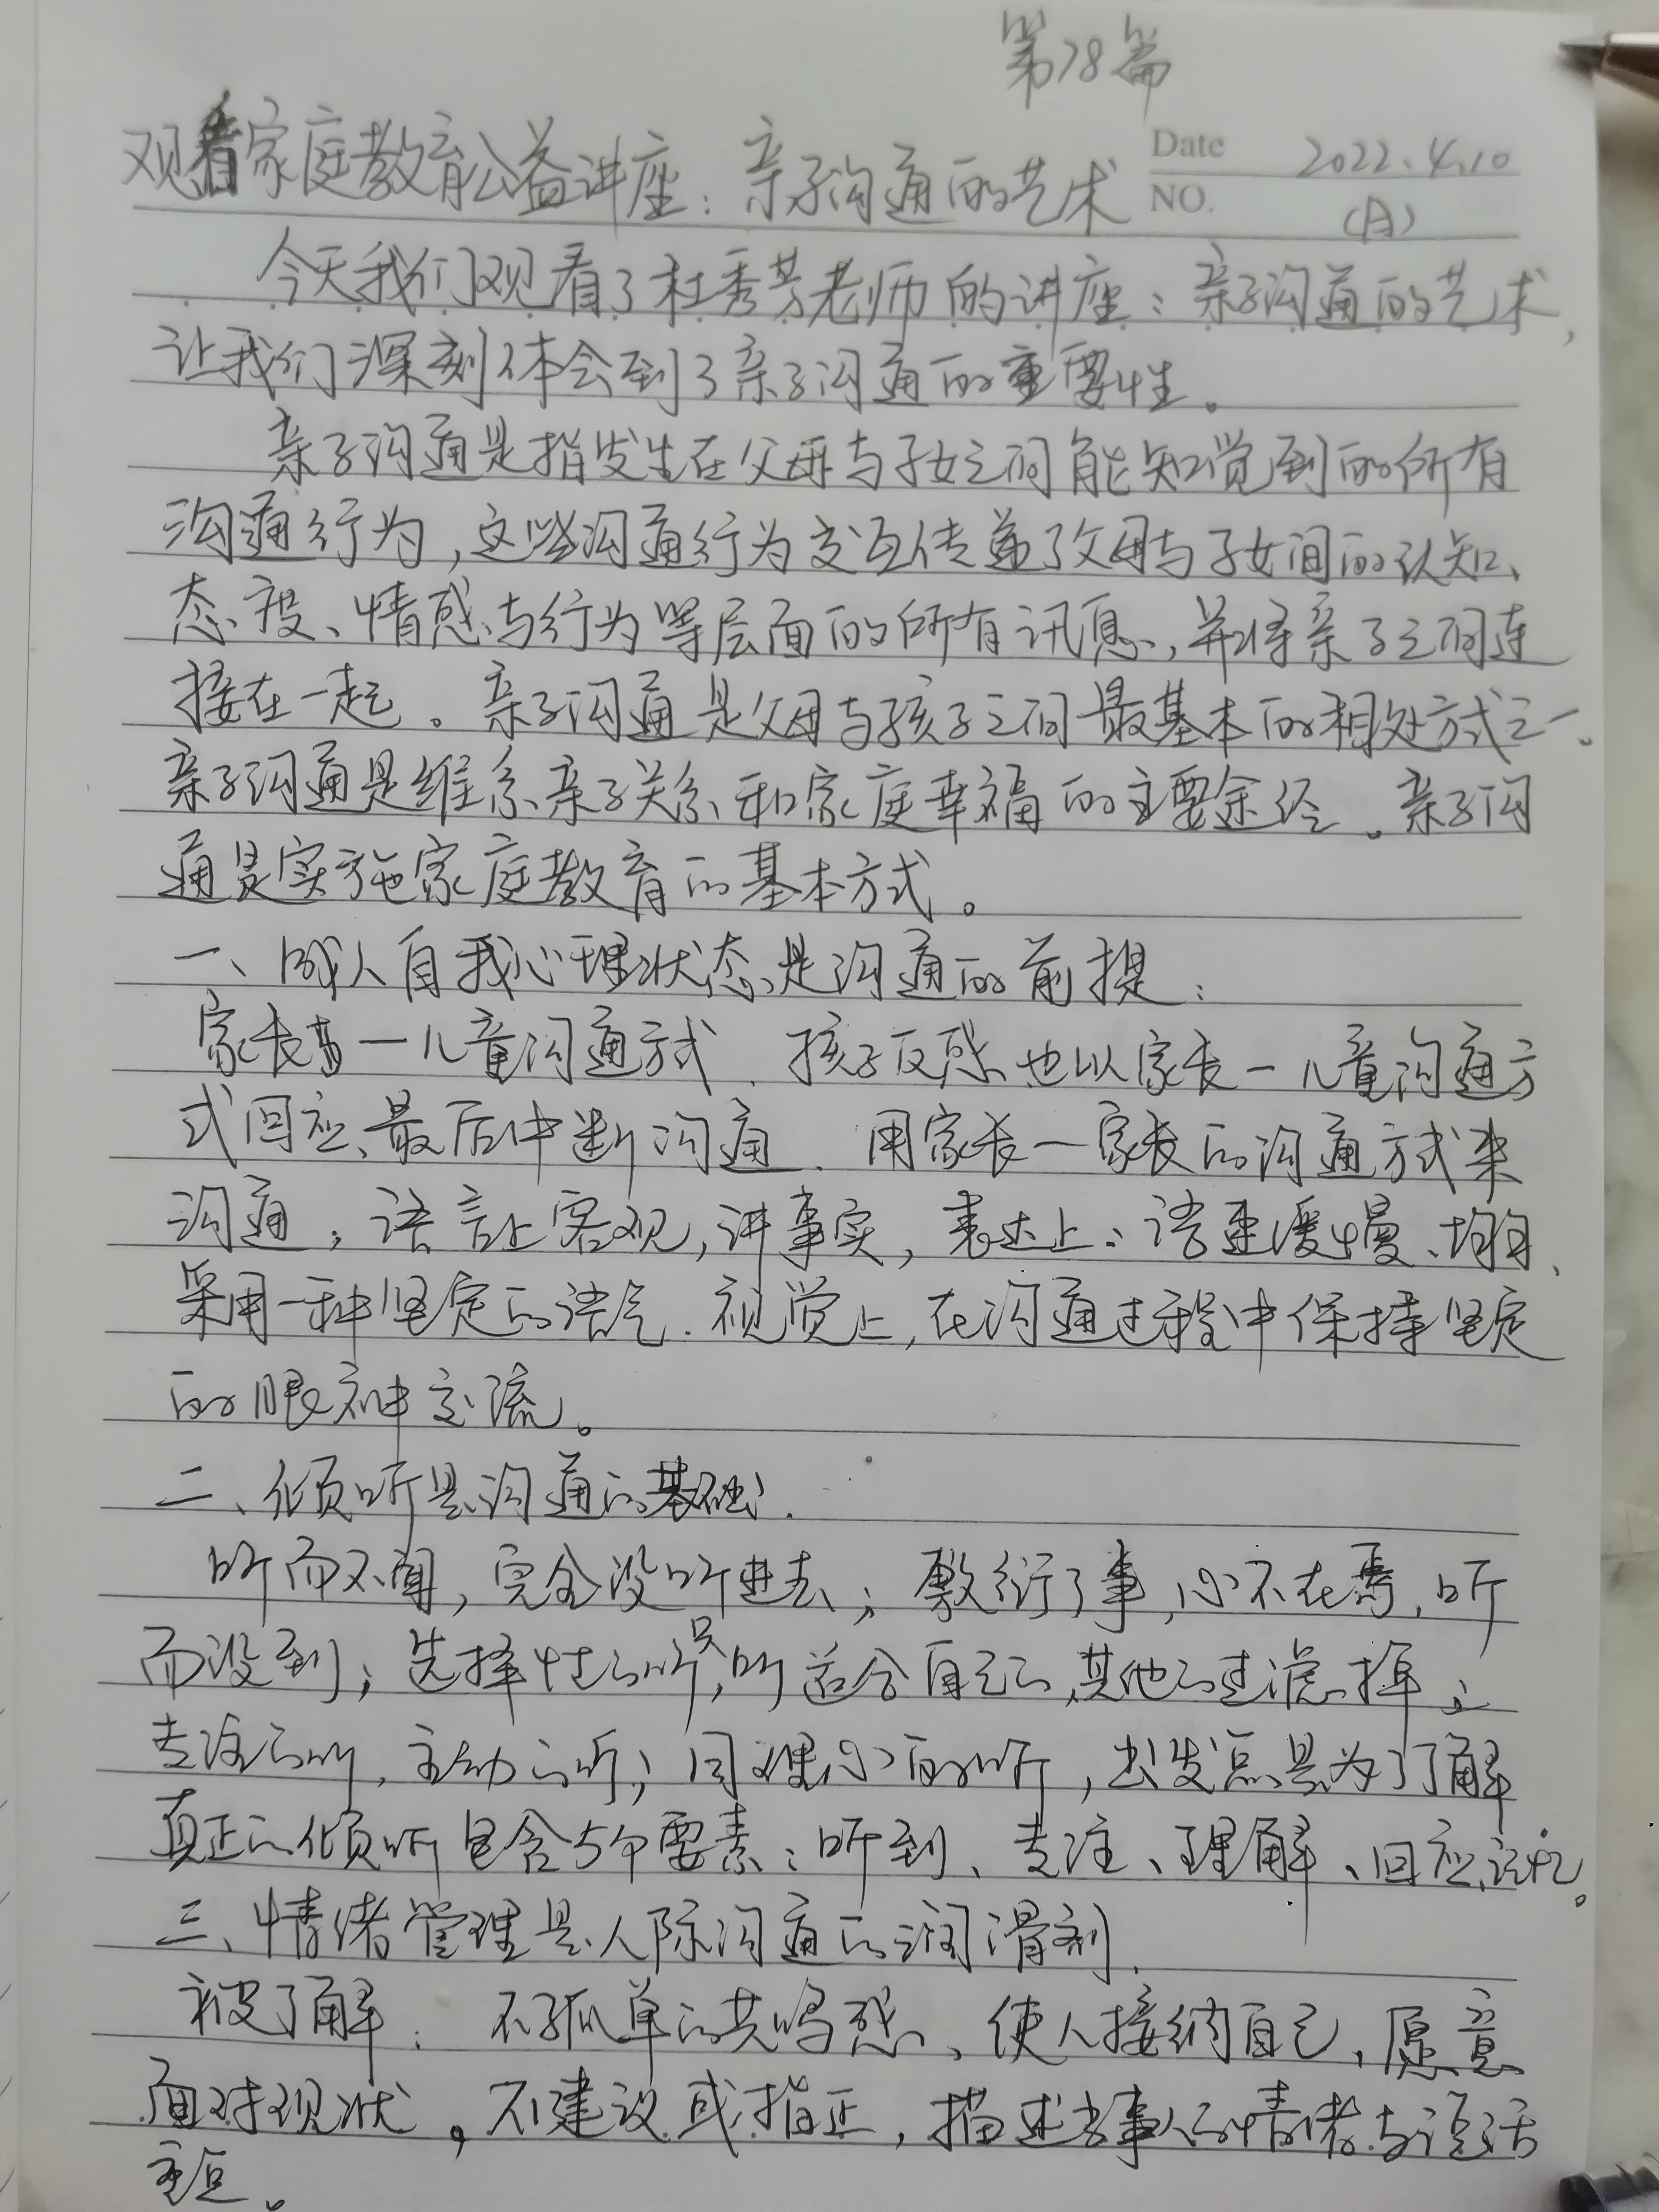 第78篇
观看家庭教育公益讲座：亲子沟通的艺术
Date 2022.4.10
NO. (A)
今天我们观看了杜秀芳老师的讲座：亲子沟通的艺术，
让我们深刻体会到了亲子沟通的重要性。
亲子沟通是指发生在父母与子女之间能知觉到的所有
沟通行为，这些沟通行为交互传递了父母与子女间的认知、
态度、情感与行为等层面的所有讯息，并将亲子之间连
接在一起。亲子沟通是父母与孩子之间最基本的相处方式之一。
亲子沟通是维系亲子关系和家庭幸福的主要途径。亲子沟
通是实施家庭教育的基本方式。
一、成人自我心理状态是沟通的前提：
家长一儿童沟通方式．孩子反感也以家长一儿童沟通方
式回应、最后中断沟通．用家长一家长的沟通方式来
沟通，语言上客观，讲事实，表达上：语速缓慢、均匀、
采用一种坚定的语气．视觉上，在沟通过程中保持坚定
的眼神交流。
二、倾听是沟通的基础．
听而不闻，完全没听进去；敷衍了事，心不在焉，听
而没到；选择性的听，只听适合自己的，其他的过滤掉；
专注的听，主动的听；同理心的听，出发点是为了了解
真正的倾听包含5个要素：听到、专注、理解、回应、记忆。
三、情绪管理是人际沟通的润滑剂．
被了解：不孤单的共鸣感、使人接纳自己，愿意
面对现状，不建议或指正，描述当事人的情绪与说话
主旨。